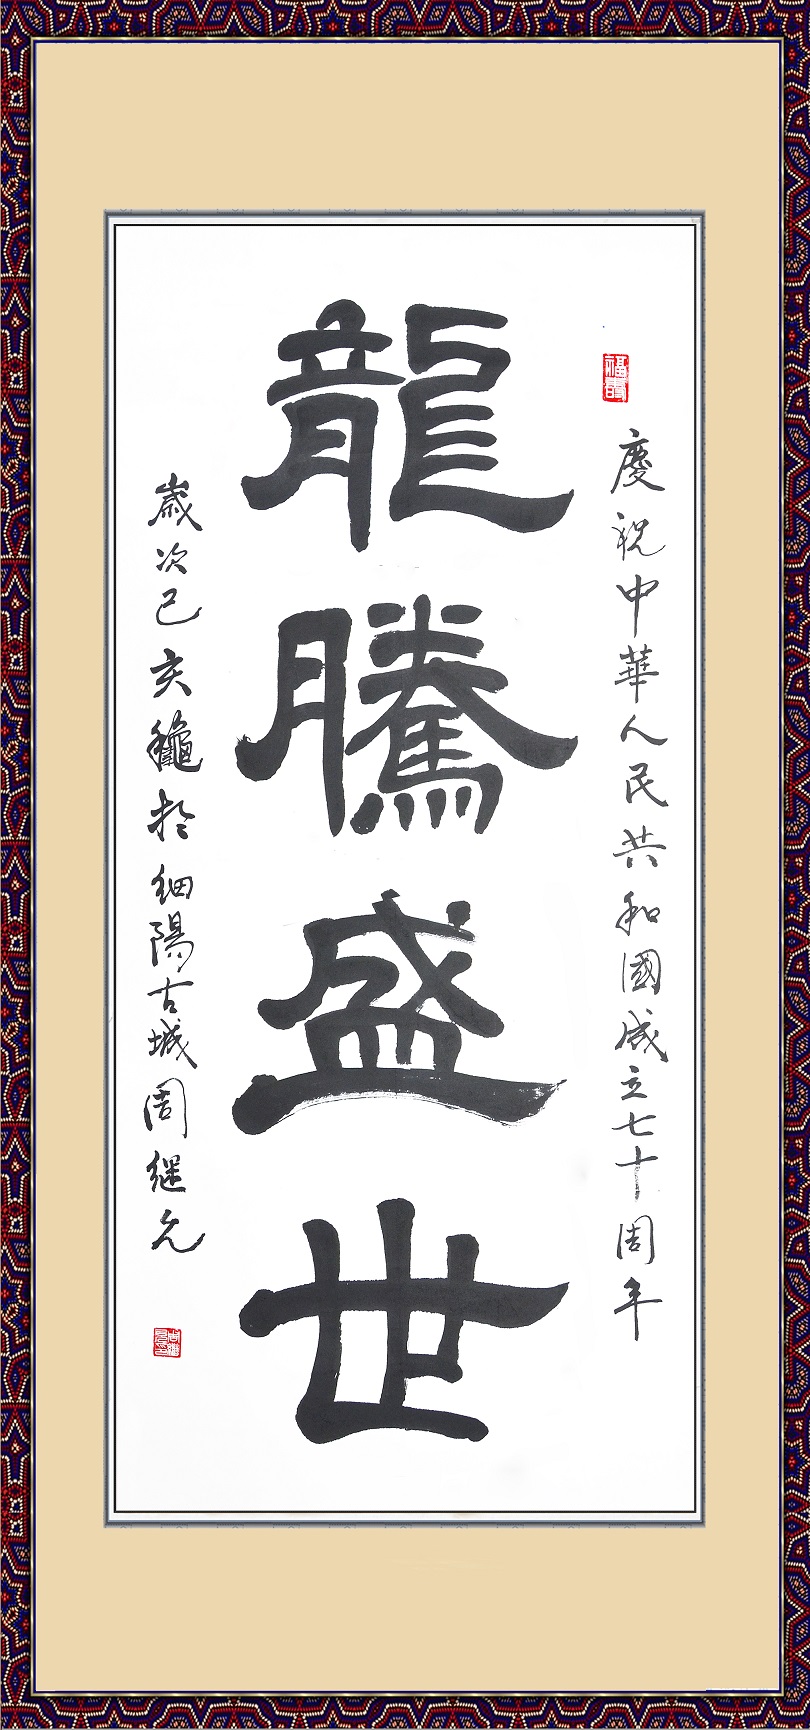 福壽
慶祝中華人民共和國成立七十周年
龍騰盛世
歲次己亥龝於細陽古城周繼允